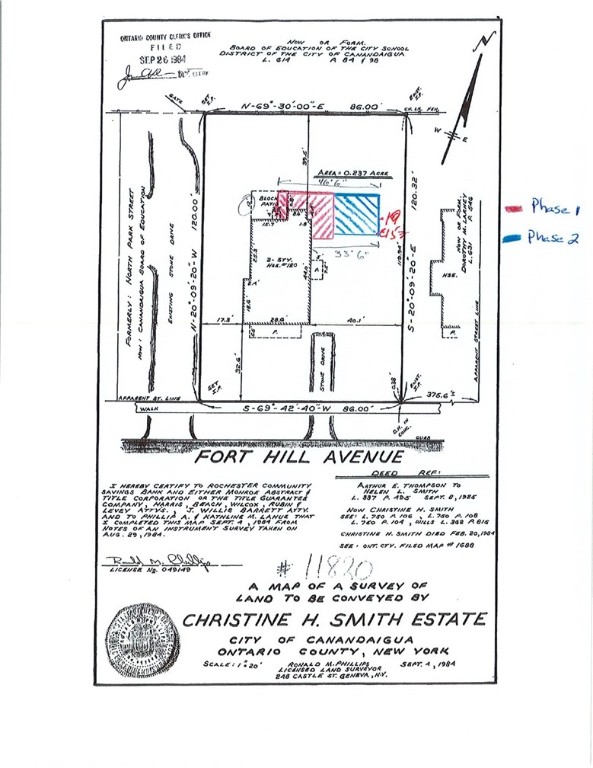 ONTARIO COUNTY CLERK'S OFFICE
FILED
SEP 26 1984
NOW OR FORM.
BOARD OF EDUCATION OF THE CITY SCHOOL
DISTRICT OF THE CITY OF CANANDAIGUA
L. 614 P. 84 & 98
N
W
E
GATE
N-69°-30'-00"-E 86.00'
AREA = 0.237 ACRE
46'6"
BLOCK
PATIO
33'6"
2-STY.
HSE. #120
17.3
40.1
28.8
P.
STONE DRIVE
FORMERLY: NORTH PARK STREET
NOW: CANANDAIGUA BOARD OF EDUCATION
EXISTING STONE DRIVE
N-20°-09'-20"-W 120.00'
S-20°-09'-20"-E
120.32'
HSE.
P.
APPARENT STREET LINE
Phase 1
Phase 2
375.6'±
APPARENT ST. LINE
WALK
S-69°-42'-40"-W 86.00'
CURB
FORT HILL AVENUE
DEED REF:
ARTHUR E. THOMPSON TO
HELEN L. SMITH
NOW CHRISTINE H. SMITH
CHRISTINE H. SMITH DIED FEB. 20, 1984
SEE: ONT. CTY. FILED MAP #1688
I HEREBY CERTIFY TO ROCHESTER COMMUNITY
SAVINGS BANK AND EITHER MONROE ABSTRACT &
TITLE CORPORATION OR THE TITLE GUARANTEE
COMPANY, HARRIS, BEACH, WILCOX, RUBIN &
LEVEY ATTYS., J. WILLIS BARRETT ATTY.
AND TO PHILLIP A. & KATHLINE M. LANUE THAT
I COMPLETED THIS MAP SEPT. 4, 1984 FROM
NOTES OF AN INSTRUMENT SURVEY TAKEN ON
AUG. 29, 1984.
LICENSE No. 049149
# 11820
A MAP OF A SURVEY OF
LAND TO BE CONVEYED BY
CHRISTINE H. SMITH ESTATE
CITY OF CANANDAIGUA
ONTARIO COUNTY, NEW YORK
SCALE: 1"=20'
RONALD M. PHILLIPS
LICENSED LAND SURVEYOR
SEPT. 4, 1984
246 CASTLE ST. GENEVA, N.Y.